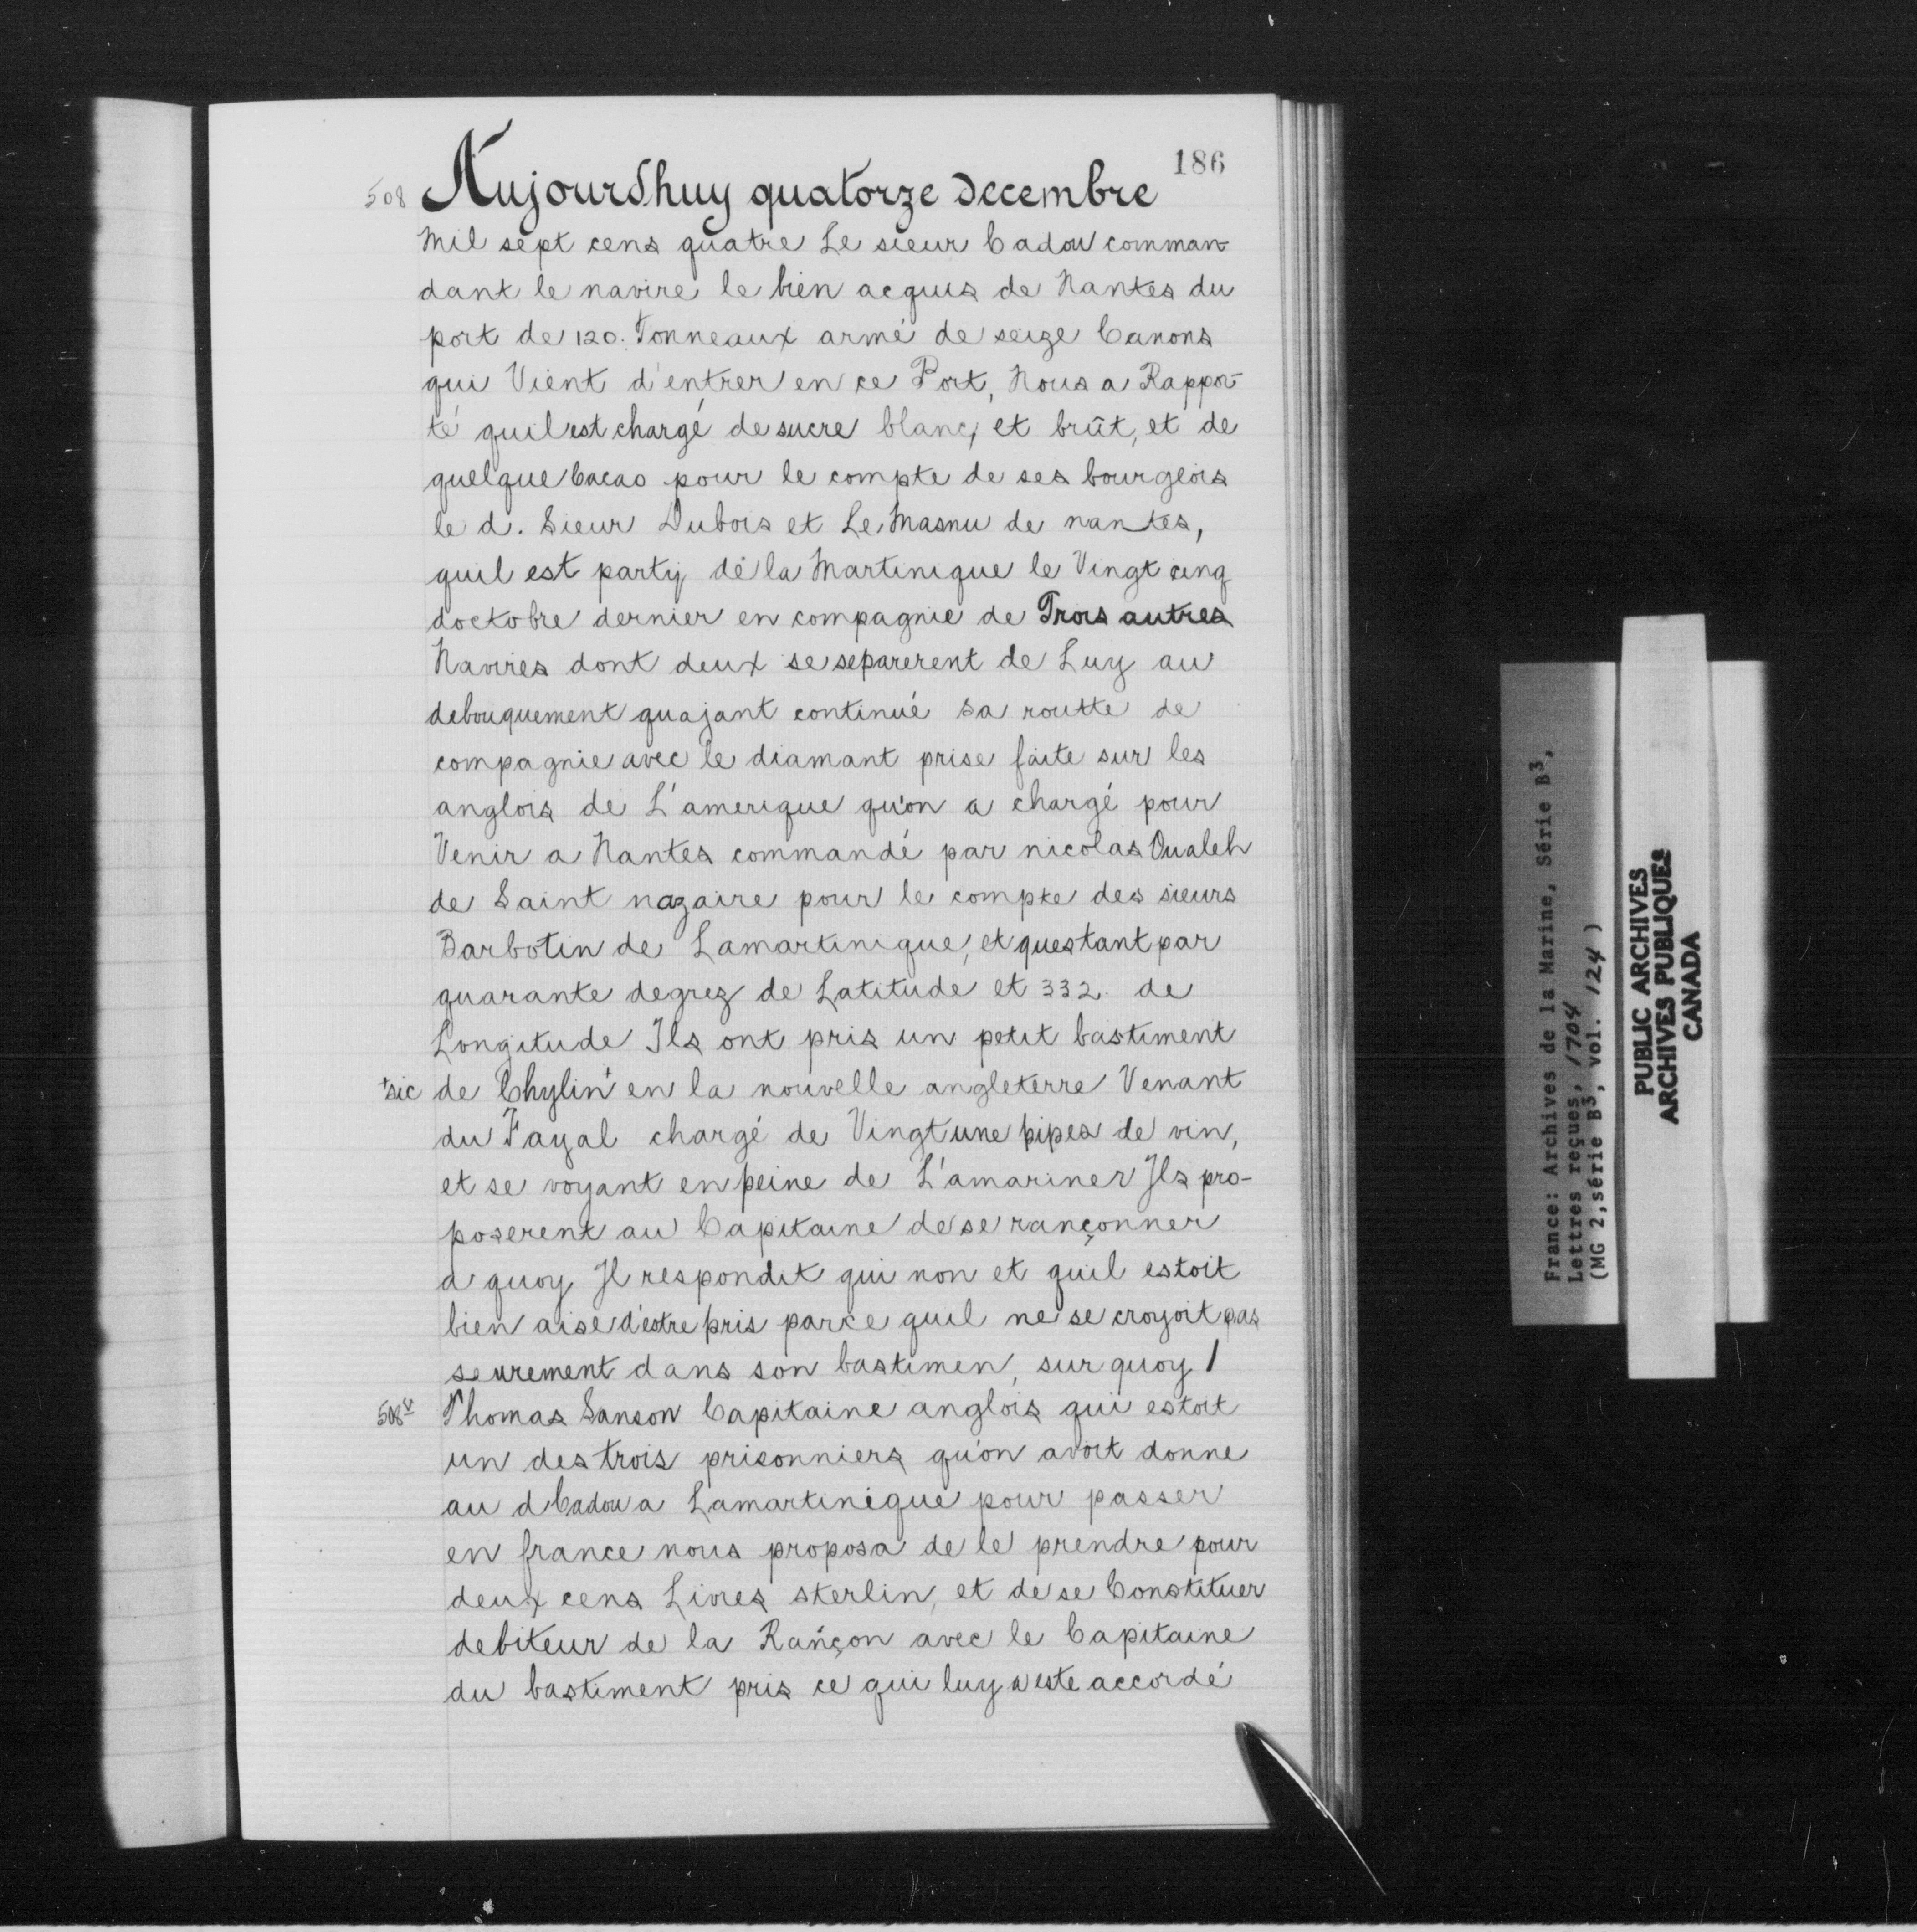 186
508 Aujourdhuy quatorze decembre
mil sept cens quatre Le sieur Cadou comman
dant le navire le bien acquis de Nantes du
port de 120. Tonneaux armé de seize Canons
qui Vient d'entrer en ce Port, Nous a Rappor-
té quil est chargé de sucre blanc, et brût, et de
quelque Cacao pour le compte de ses bourgeois
le d. Sieur Dubois et Le Masnu de nantes,
quil est party de la Martinique le Vingt cinq
doctobre dernier en compagnie de Trois autres
Navires dont deux se separerent de Luy au
debouquement quajant continué sa routte de
compagnie avec le diamant prise faite sur les
anglois de L'amerique qu'on a chargé pour
Venir a Nantes commandé par nicolas Oualeh
de Saint nazaire pour le compte des sieurs
Barbotin de Lamartinique, et questant par
quarante degrez de Latitude et 332. de
Longitude Ils ont pris un petit bastiment
+sic de Chylin+ en la nouvelle angleterre Venant
du Fayal chargé de Vingt une pipes de vin,
et se voyant en peine de L'amariner Ils pro-
poserent au Capitaine de se rançonner
a quoy Il respondit qui non et quil estoit
bien aise d'estre pris parce quil ne se croyoit pas
seurement dans son bastimen, sur quoy /
508v Thomas Sanson Capitaine anglois qui estoit
un des trois prisonniers qu'on avoit donne
au d Cadou a Lamartinique pour passer
en france nous proposa de le prendre pour
deux cens Livres sterlin, et de se Constituer
debiteur de la Rançon avec le Capitaine
du bastiment pris ce qui luy a este accordé
France: Archives de la Marine, Série B3,
Lettres reçues, 1704
(MG 2, série B3, vol. 124)
PUBLIC ARCHIVES
ARCHIVES PUBLIQUES
CANADA